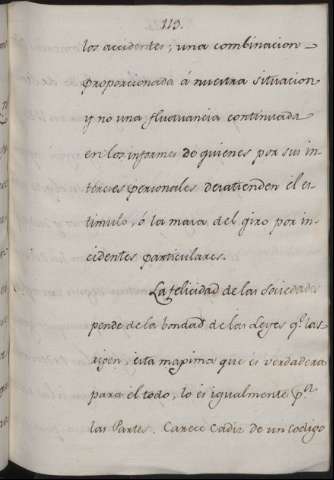 119.
los accidentes; una combinacion
proporcionada á nuestra situacion
y no una fluctuancia continuada
en los informes de quienes por sus in
tereses personales desatienden el es
timulo, ó la masa del giro por in-
cidentes particulares.
La felicidad de las Sociedad
pende de la bondad de las Leyes qe. las
rigen, esta maxima que es verdadera
para el todo, lo es igualmente pa.
las Partes. Carece Cadiz de un Codigo